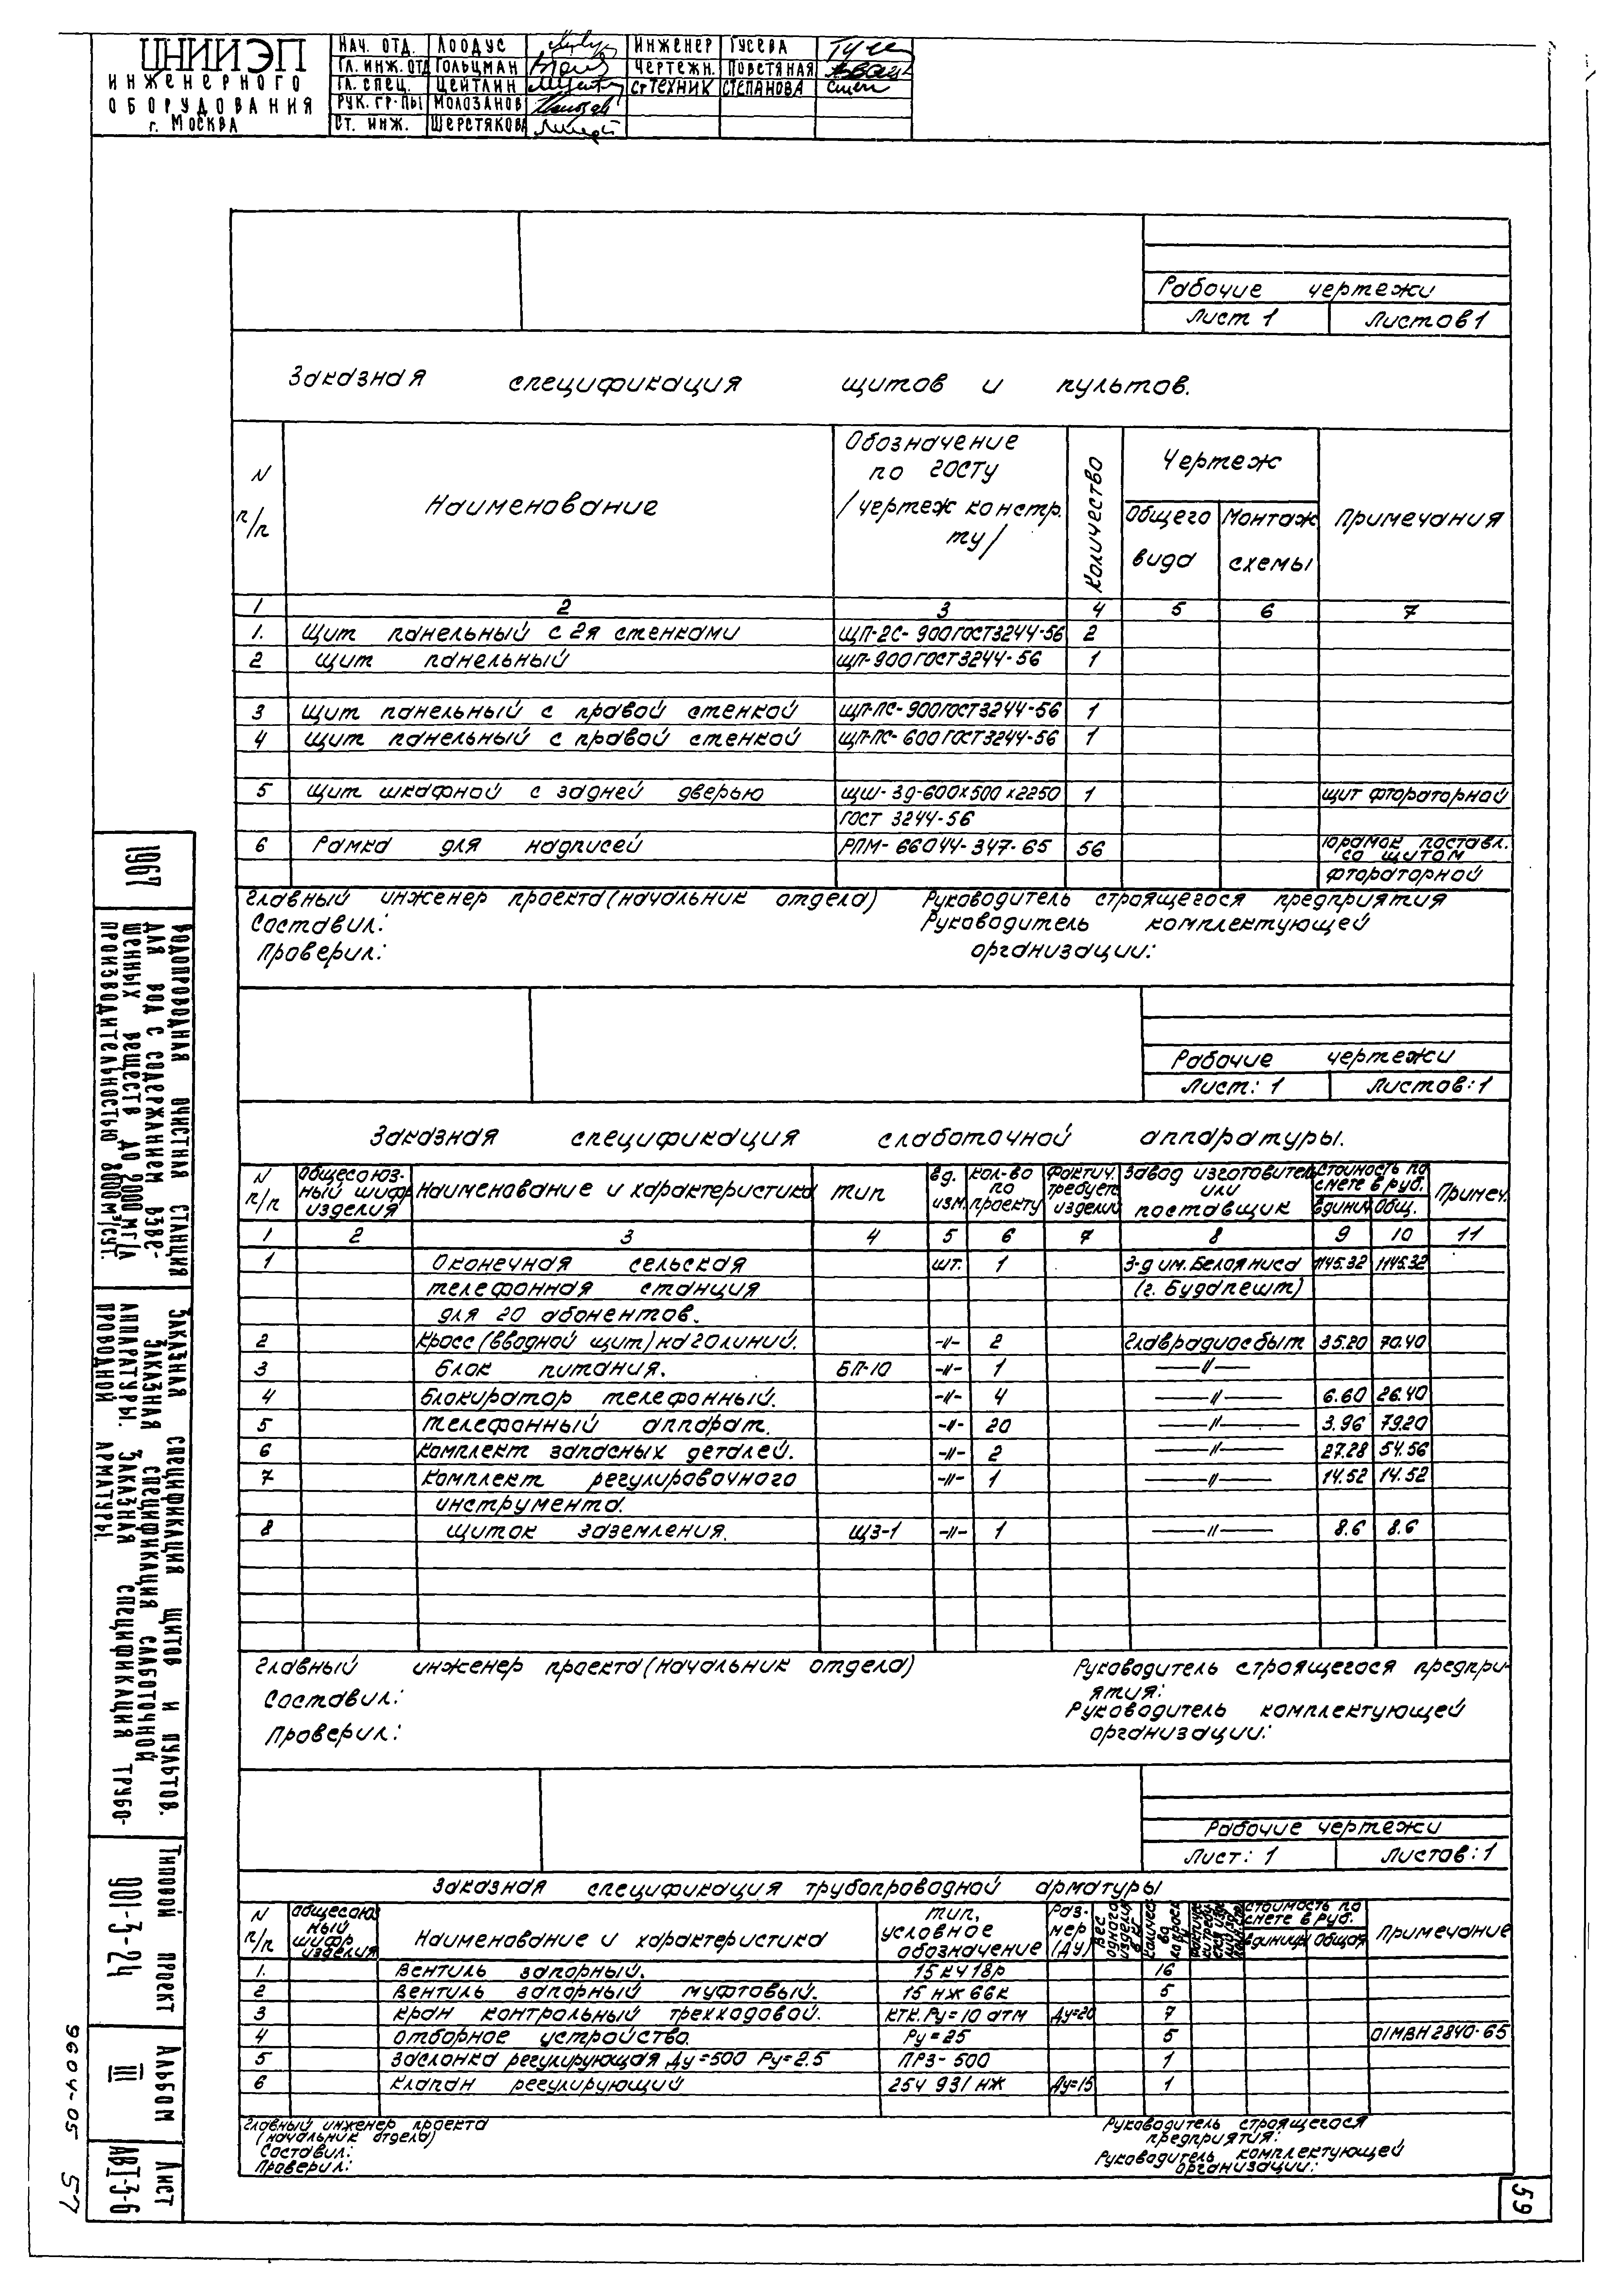 ЦНИИЭП
ИНЖЕНЕРНОГО
ОБОРУДОВАНИЯ
г. МОСКВА
НАЧ. ОТД. ЛООДУС ИНЖЕНЕР ГУСЕВА
ГЛ. ИНЖ. ОТД ГОЛЬЦМАН ЧЕРТЕЖН. ПОВСТЯНАЯ
ГЛ. СПЕЦ. ЦЕЙТЛИН СТ ТЕХНИК СТЕПАНОВА
РУК. ГР-ПЫ МОЛОЗАНОВ
СТ. ИНЖ. ШЕРСТЯКОВА
Рабочие чертежи
Лист 1 Листов 1
Заказная спецификация щитов и пультов.
N п/п Наименование Обозначение по ГОСТу /чертеж констр. ту/ Количество Чертеж Общего вида Монтаж схемы Примечания
1 2 3 4 5 6 7
1. Щит панельный с 2я стенками ЩП-2С-900 ГОСТ 3244-56 2
2 Щит панельный ЩП-900 ГОСТ 3244-56 1
3 Щит панельный с правой стенкой ЩП-ПС-900 ГОСТ 3244-56 1
4 Щит панельный с правой стенкой ЩП-ПС-600 ГОСТ 3244-56 1
5 Щит шкафной с задней дверью ЩШ-ЗД-600х500х2250 1 щит фтораторной
ГОСТ 3244-56
6 Рамка для надписей РПМ-66044-347-65 56 10рамок поставл.
со щитом
фтораторной
Главный инженер проекта (начальник отдела) Руководитель строящегося предприятия
Составил: Руководитель комплектующей
Проверил: организации:
Рабочие чертежи
Лист: 1 Листов: 1
Заказная спецификация слаботочной аппаратуры.
N п/п Общесоюзный шифр изделия Наименование и характеристика Тип Ед. изм. Кол-во по проекту Фактич. требует изделий Завод изготовитель или поставщик Стоимость по смете в руб. Единиц. Общ. Примеч.
1 2 3 4 5 6 7 8 9 10 11
1 Оконечная сельская шт. 1 З-д им. Белояниса 1145.32 1145.32
телефонная станция (г. Будапешт)
для 20 абонентов.
2 Кросс (вводной щит) на 20 линий. -"- 2 Главрадиосбыт 35.20 70.40
3 Блок питания. БП-10 -"- 1 —"—
4 Блокиратор телефонный. -"- 4 —"— 6.60 26.40
5 Телефонный аппарат. -"- 20 —"— 3.96 79.20
6 Комплект запасных деталей. -"- 2 —"— 27.28 54.56
7 Комплект регулировочного -"- 1 —"— 14.52 14.52
инструмента.
8 Щиток заземления. ЩЗ-1 -"- 1 —"— 8.6 8.6
Главный инженер проекта (начальник отдела) Руководитель строящегося предпри-
ятия:
Составил: Руководитель комплектующей
Проверил: организации:
Рабочие чертежи
Лист: 1 Листов: 1
Заказная спецификация трубопроводной арматуры
N п/п Общесоюзный шифр изделия Наименование и характеристика Тип, условное обозначение Размер (Ду) Вес одного изделия Стоимость по смете в руб. Единицы Общая Примечание
1. Вентиль запорный. 15КЧ18р 16
2 Вентиль запорный муфтовый. 15 нж 66к 5
3 Кран контрольный трехходовой. КТК. Ру=10 атм Ду=20 7
4 Отборное устройство. Ру=25 5 01МВН2840-65
5 Заслонка регулирующая Ду=500 Ру=2.5 ПРЗ-500 1
6 Клапан регулирующий 25ч 931 нж Ду=15 1
Главный инженер проекта
(начальник отдела)
Составил:
Проверил:
Руководитель строящегося
предприятия:
Руководитель комплектующей
организации:
1967
ВОДОПРОВОДНАЯ ОЧИСТНАЯ СТАНЦИЯ
ДЛЯ ВОД С СОДЕРЖАНИЕМ ВЗВЕ-
ШЕННЫХ ВЕЩЕСТВ ДО 2000 МГ/Л
ПРОИЗВОДИТЕЛЬНОСТЬЮ 800 М³/СУТ.
ЗАКАЗНАЯ СПЕЦИФИКАЦИЯ ЩИТОВ И ПУЛЬТОВ.
ЗАКАЗНАЯ СПЕЦИФИКАЦИЯ СЛАБОТОЧНОЙ
АППАРАТУРЫ. ЗАКАЗНАЯ СПЕЦИФИКАЦИЯ ТРУБО-
ПРОВОДНОЙ АРМАТУРЫ.
ТИПОВОЙ ПРОЕКТ
901-3-24
АЛЬБОМ
III
ЛИСТ
АВТЗ-6
9604-05 57
59